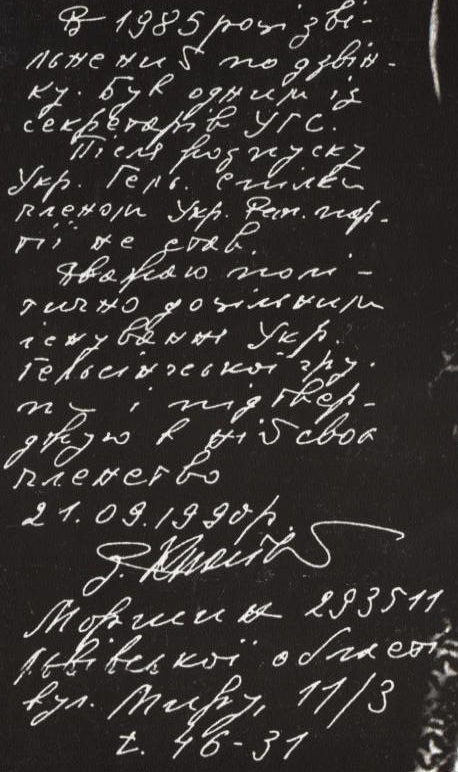 В 1985 році зві-
льнений по дзвін-
ку. Був одним із
секретарів УГС.
Після розпуску
Укр. Гель. Спілки
членом Укр. Респ. пар-
тії не став.
Вважаю полі-
тично доцільним
існування Укр.
Гельсінської гру-
пи і підтвер-
джую в ній своє
членство
21.09.1990р.
Моршин 293511
Львівської області
вул. Миру, 11/3
т. 46-31